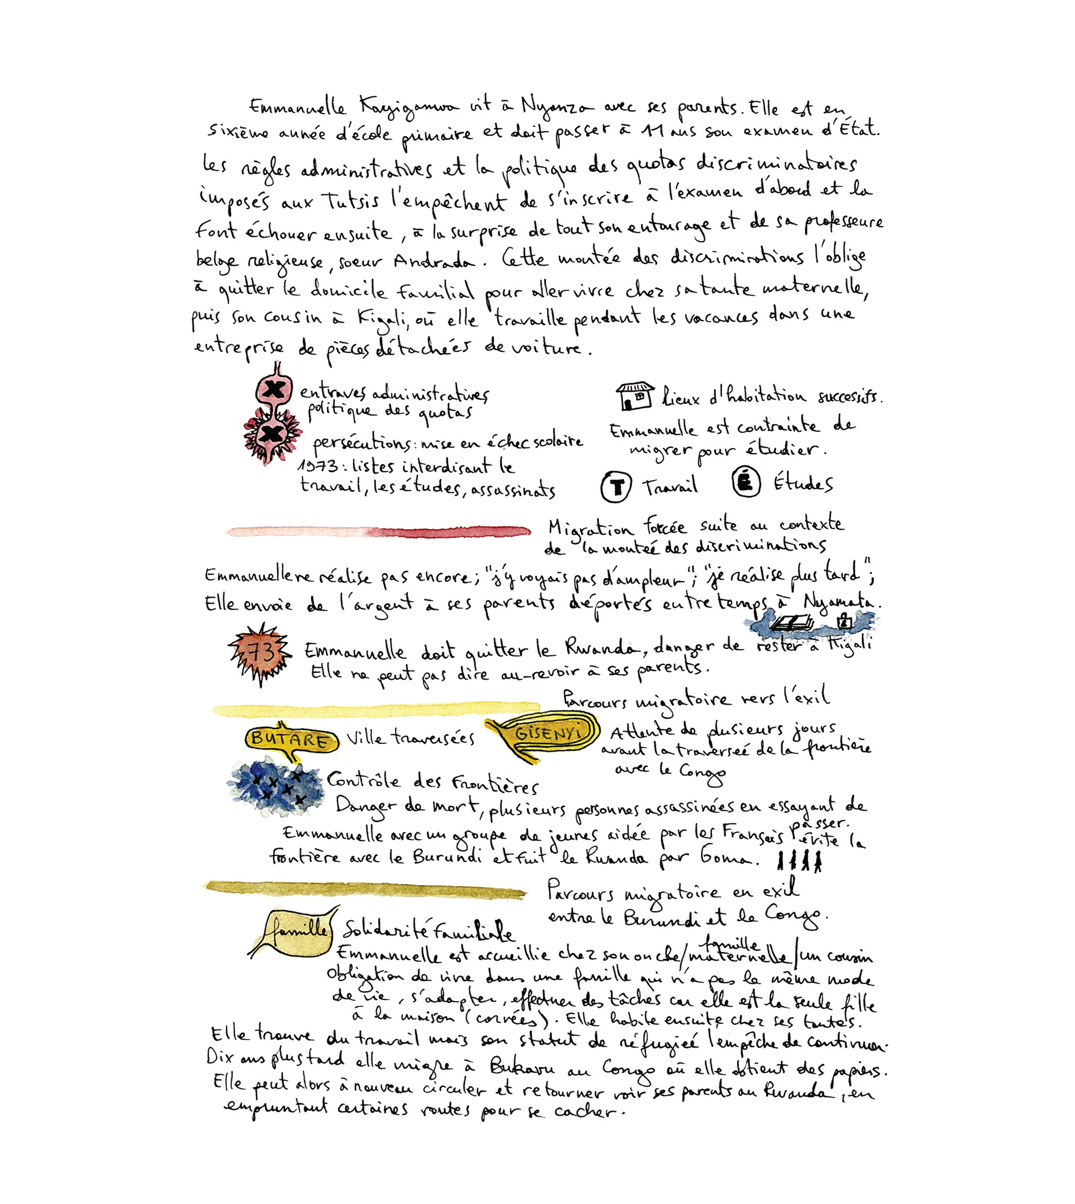 Emmanuelle Kayigamwa vit à Nyanza avec ses parents. Elle est en
sixième année d'école primaire et doit passer à 11 ans son examen d'État.
Les règles administratives et la politique des quotas discriminatoires
imposés aux Tutsis l'empêchent de s'inscrire à l'examen d'abord et la
font échouer ensuite, à la surprise de tout son entourage et de sa professeure
belge religieuse, soeur Andrada. Cette montée des discriminations l'oblige
à quitter le domicile familial pour aller vivre chez sa tante maternelle,
puis son cousin à Kigali, où elle travaille pendant les vacances dans une
entreprise de pièces détachées de voiture.
entraves administratives
politique des quotas
persécutions: mise en échec scolaire
1973: listes interdisant le
travail, les études, assassinats
lieux d'habitation successifs.
Emmanuelle est contrainte de
migrer pour étudier.
T Travail É Études
Migration forcée suite au contexte
de la montée des discriminations
Emmanuelle ne réalise pas encore; "j'y voyais pas d'ampleur"; "je réalise plus tard";
Elle envoie de l'argent à ses parents déportés entre temps à Nyamata.
73 Emmanuelle doit quitter le Rwanda, danger de rester à Kigali
Elle ne peut pas dire au-revoir à ses parents.
Parcours migratoire vers l'exil
BUTARE Ville traversées
GISENYI Attente de plusieurs jours
avant la traversée de la frontière
avec le Congo
Contrôle des frontières
Danger de mort, plusieurs personnes assassinées en essayant de
passer.
Emmanuelle avec un groupe de jeunes aidée par les Français évite la
frontière avec le Burundi et fuit le Rwanda par Goma.
Parcours migratoire en exil
entre le Burundi et le Congo.
famille Solidarité Familiale
Emmanuelle est accueillie chez son oncle/famille maternelle/un cousin
obligation de vivre dans une famille qui n'a pas le même mode
de vie, s'adapter, effectuer des tâches car elle est la seule fille
à la maison (corvées). Elle habite ensuite chez ses tantes.
Elle trouve du travail mais son statut de réfugiée l'empêche de continuer.
Dix ans plus tard elle migre à Bukavu au Congo où elle obtient des papiers.
Elle peut alors à nouveau circuler et retourner voir ses parents au Rwanda, en
empruntant certaines routes pour se cacher.